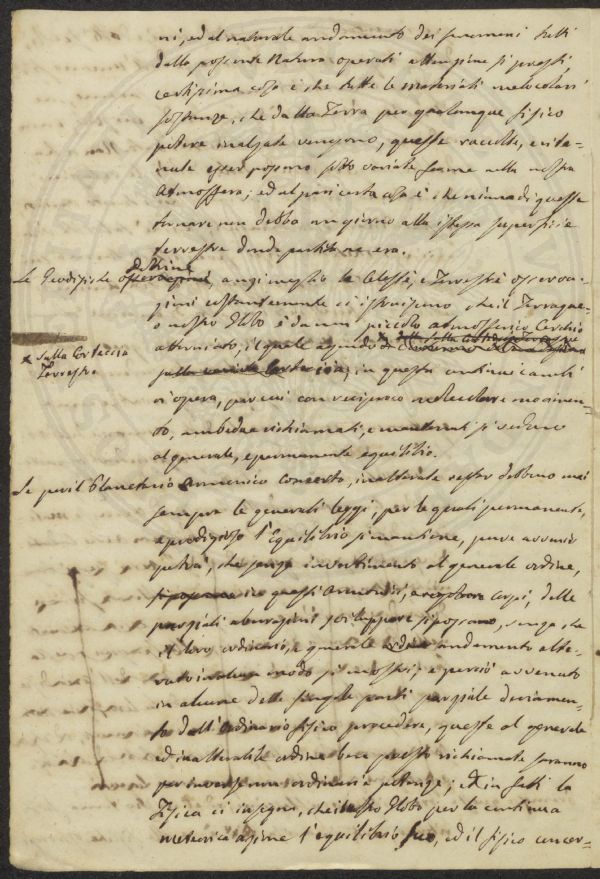 ni, ed al naturale andamento dei fenomeni tutti
dalla possente Natura operati attenzione si presti,
certissima cosa è che tutte le materiali molecolari
sostanze, che dalla Terra per qualunque fisico
potere inalzate vengono, queste raccolte, e rite-
nute esser possono sotto variate forme alla nostra
Atmosfera; ed al pari certa cosa è che niuna di queste
tornare non debba un giorno alla istessa superficie
terrestre donde partita ne era.
Le Geodisiche dottrine, anzi meglio le Celesti, e Terrestri osserva-
zioni costantemente ci istruiscono che il Terraque-
o nostro Globo è da un piccolo atmosferico Cerchio
attorniato, il quale
x sulla Corteccia
Terrestre
in questa continui cambi
vi opera, per cui con reciproco molecolare movimen-
to, ambedue richiamati, e mantenuti si vedono
al generale, e permanente equilibrio.
Se per il Planetario armonico concerto, inalterate restar debbono mai
sempre le generali leggi, per le quali permanente,
e prodigioso l'Equilibrio si mantiene, pure avvenir
potrà, che senza invertimento al generale ordine,
in questi armonici, corpi, delle
parziali aberazioni sviluppare si possano, senza che
il loro ordinario, e generale andamento alte-
rato in alcun modo si mostri; e perciò avvenuto
in alcune delle singole parti parziale deviamen-
to dall'ordinario fisico procedere, queste al generale
ed inalterabile ordine ben presto richiamate saranno
per inverse non ordinarie potenze; ed in fatti la
Fisica ci insegna, che il nostro Globo per la continua
meteorica azione l'equilibrio suo, ed il fisico concer-